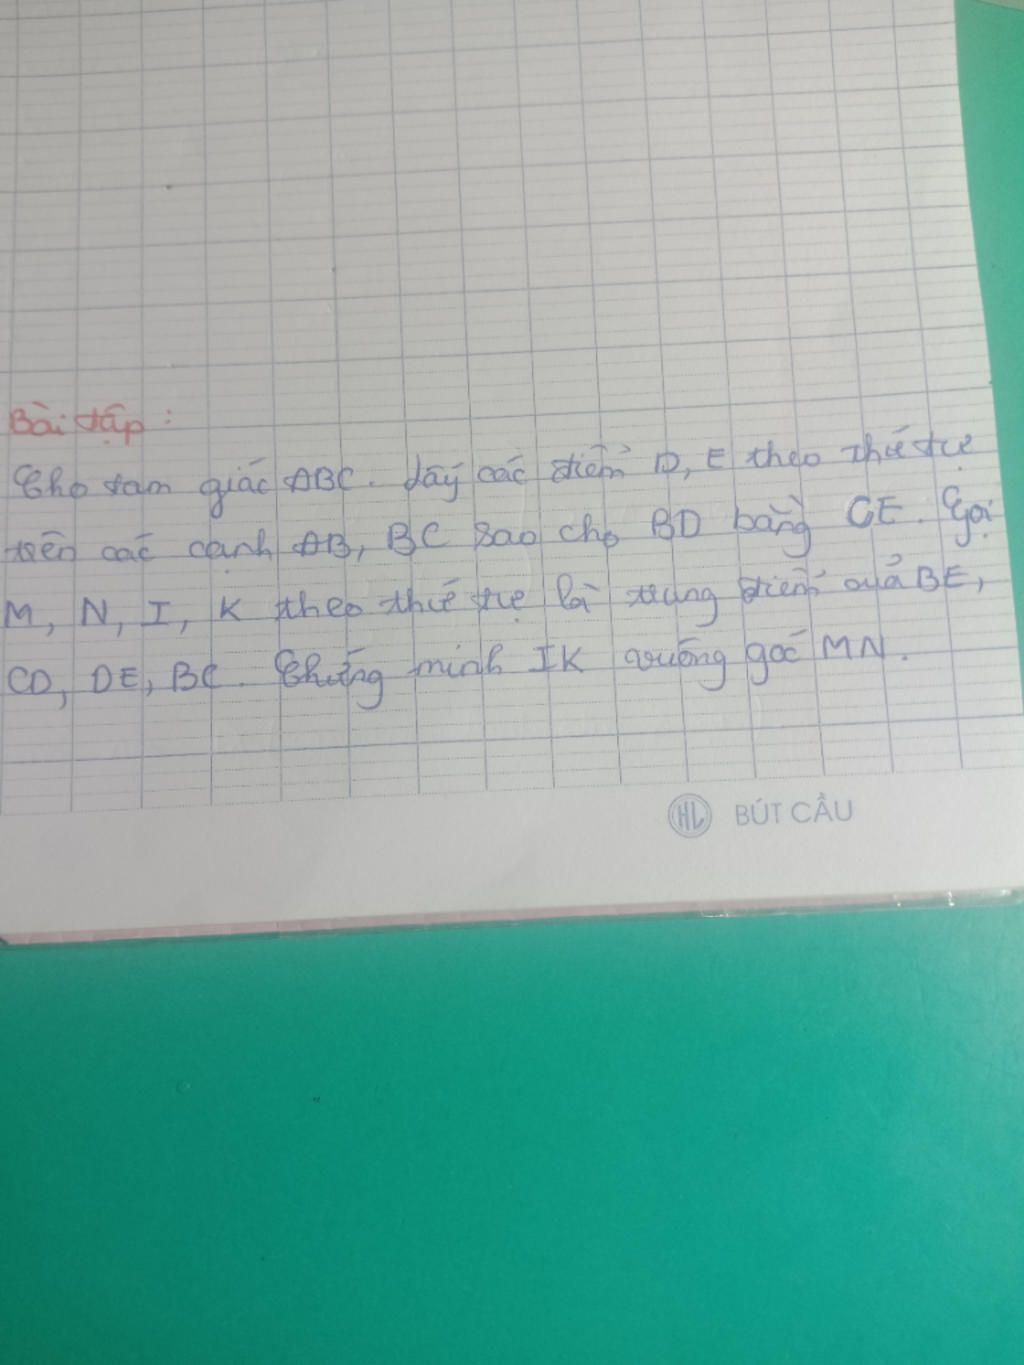 Bài tập :
Cho tam giác ABC. Lấy các điểm D, E theo thứ tự
trên các cạnh AB, BC sao cho BD bằng CE. Gọi
M, N, I, K theo thứ tự là trung điểm của BE,
CD, DE, BC. Chứng minh IK vuông góc MN.
HL BÚT CẦU